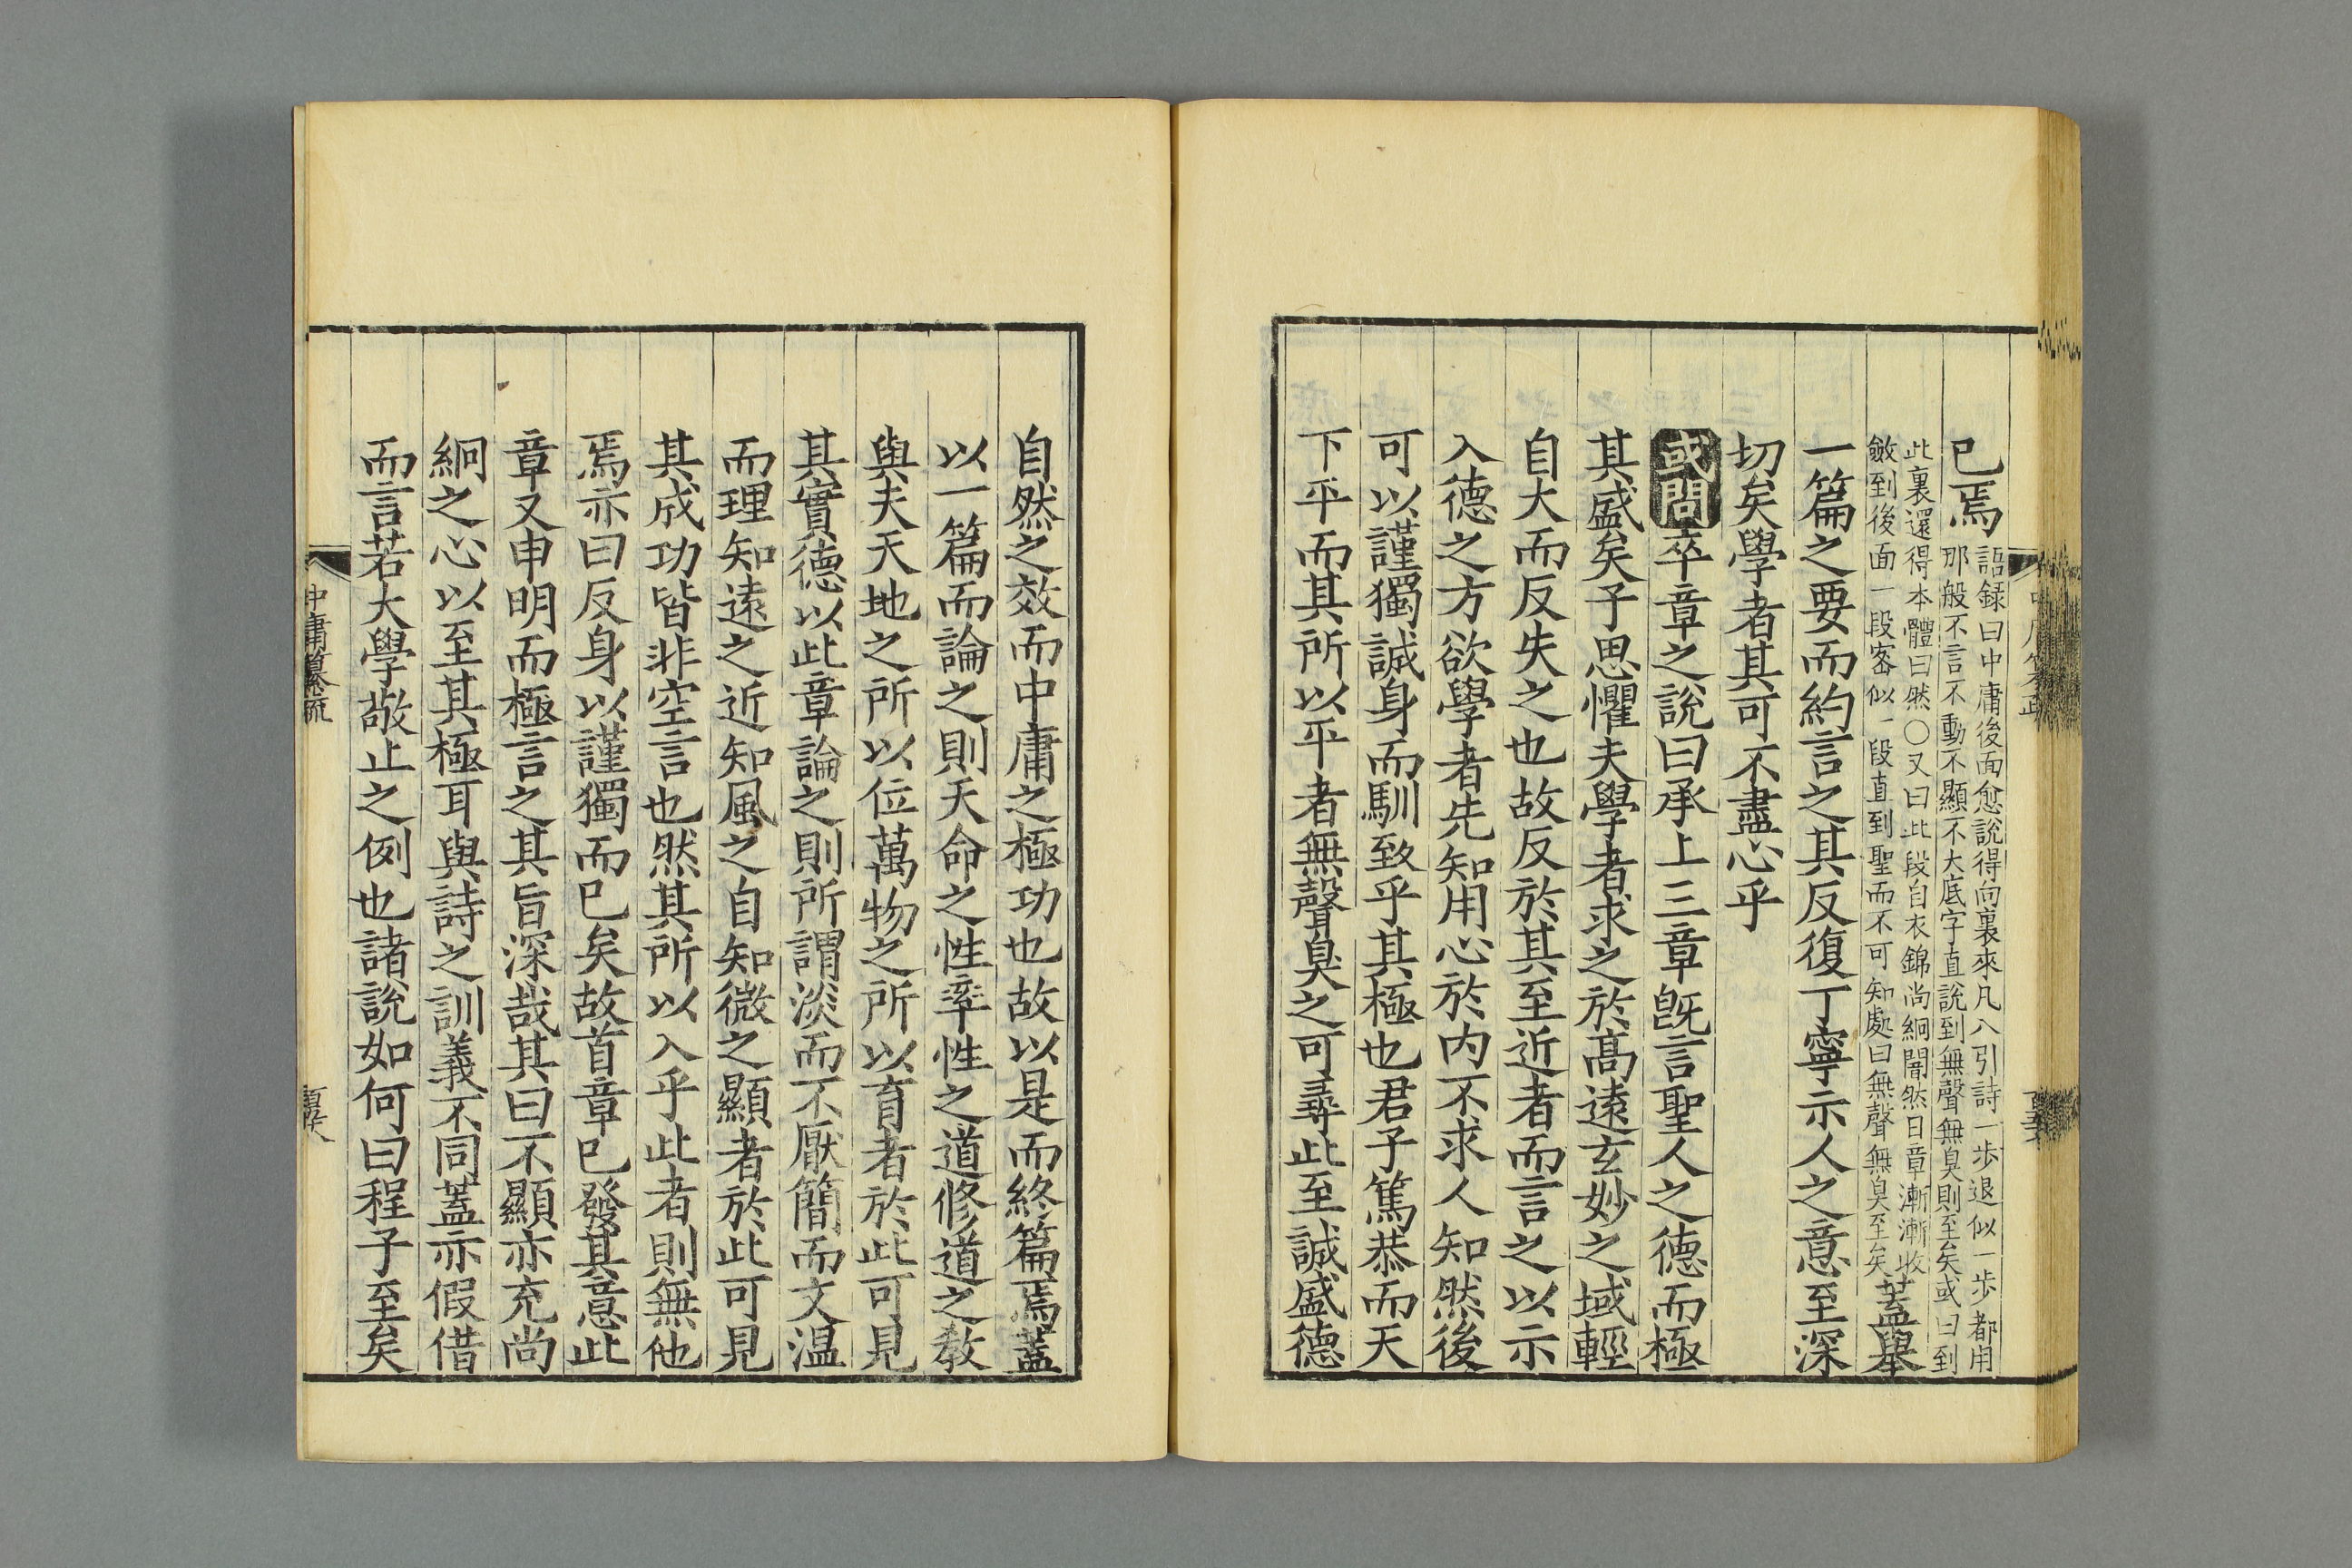 已焉語録曰中庸後面愈說得向裏來凡八引詩一步退似一步都用
那般不言不動不顯不大底字直說到無聲無臭則至矣或曰到
此裏還得本體曰然〇又曰此段自衣錦尚絅闇然日章漸漸收
斂到後面一段密似一段直到聖而不可知處曰無聲無臭至矣蓋舉
一篇之要而約言之其反復丁寧示人之意至深
切矣學者其可不盡心乎
或問卒章之說曰承上三章旣言聖人之德而極
其盛矣子思懼夫學者求之於髙遠玄妙之域輕
自大而反失之也故反於其至近者而言之以示
入德之方欲學者先知用心於内不求人知然後
可以謹獨誠身而馴致乎其極也君子篤恭而天
下平而其所以平者無聲臭之可尋此至誠盛德
自然之效而中庸之極功也故以是而終篇焉蓋
以一篇而論之則天命之性率性之道修道之敎
與夫天地之所以位萬物之所以育者於此可見
其實德以此章論之則所謂淡而不厭簡而文温
而理知遠之近知風之自知微之顯者於此可見
其成功皆非空言也然其所以入乎此者則無他
焉亦曰反身以謹獨而已矣故首章已發其意此
章又申明而極言之其旨深哉其曰不顯亦充尚
絅之心以至其極耳與詩之訓義不同蓋亦假借
而言若大學敬止之例也諸說如何曰程子至矣
中庸纂疏